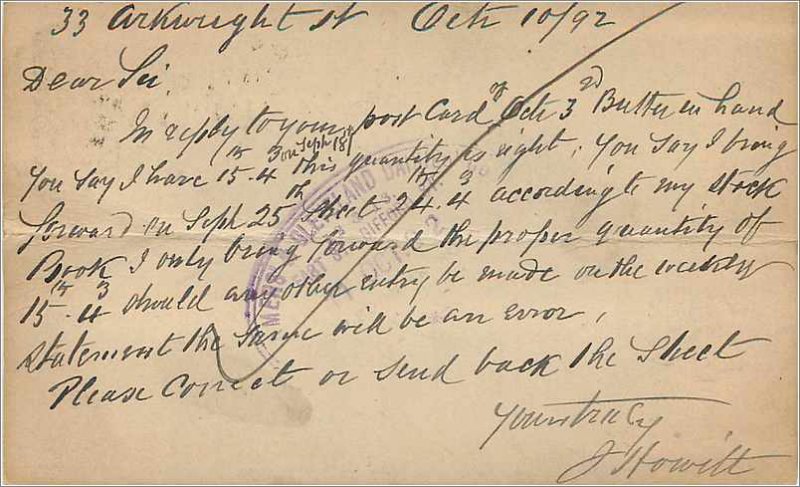 33 Arkwright St Octr 10/92
Dear Sir,
In reply to your post card of Oct 3rd Butter in hand
you say I have 15.4 on Sepbr 18th this quantity is right, you say I bring
forward on Sept 25th Sheet 24.4 according to my stock
Book I only bring forward the proper quantity of
15.4 should any other entry be made on the weekly
statement the same will be an error,
Please correct or send back the Sheet
Yours truly
J Howitt